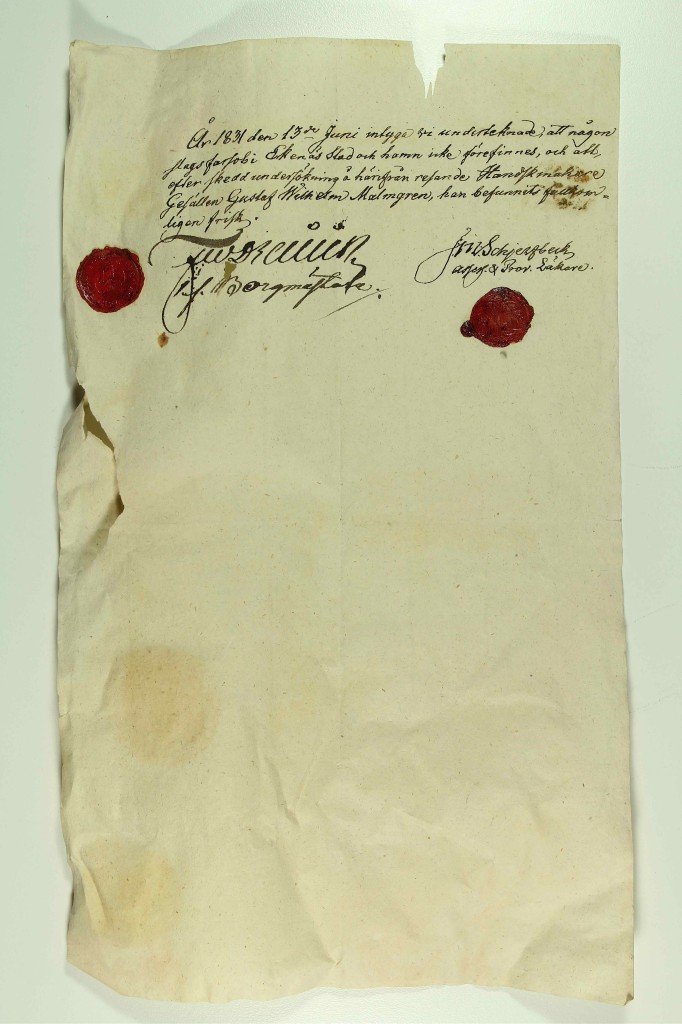 År 1831 den 13de Juni intyga vi undertecknade, att någon
slags farsot i Ekenäs Stad och hamn icke förefinnes, och att,
efter skedd undersökning å härifrån resande Handskmakare
Gesällen Gustaf Wilhelm Malmgren, han befunnits fullkom-
ligen frisk.
Borgmästare.
Schjerfbeck
& Prov. Läkare.